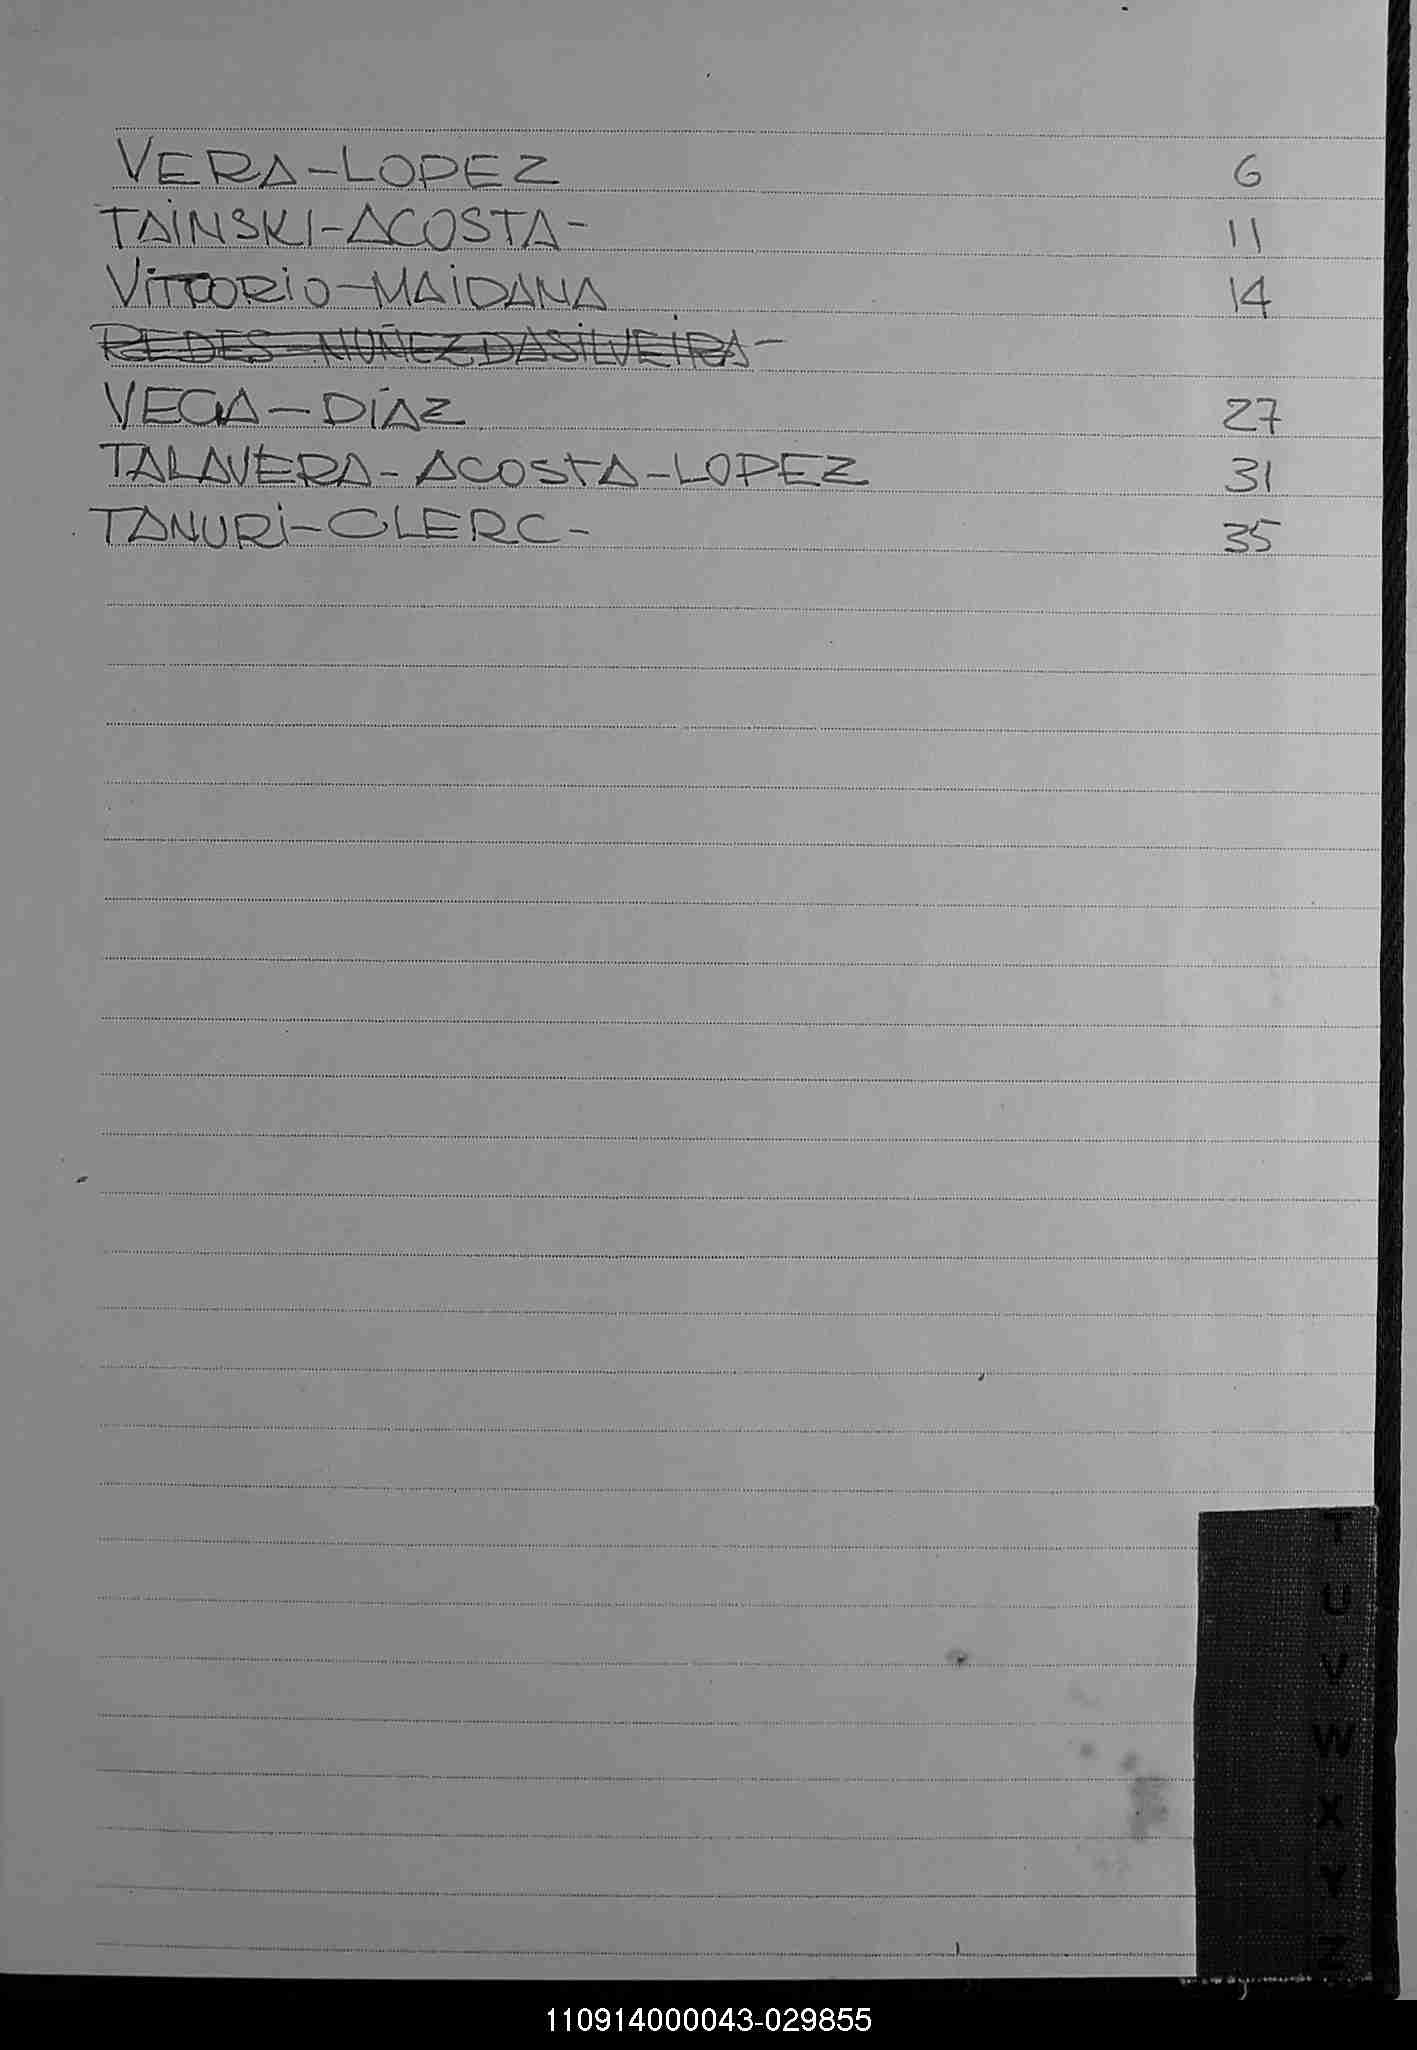 VERA-LOPEZ 6
TAINSKI-ACOSTA- 11
VITTORIO-MAIDANA 14
REDES-NUÑEZ DASILVEIRA-
VEGA-DÍAZ 27
TALAVERA-ACOSTA-LOPEZ 31
TANURI-CLERC- 35
T
U
V
W
X
Y
Z
110914000043-029855